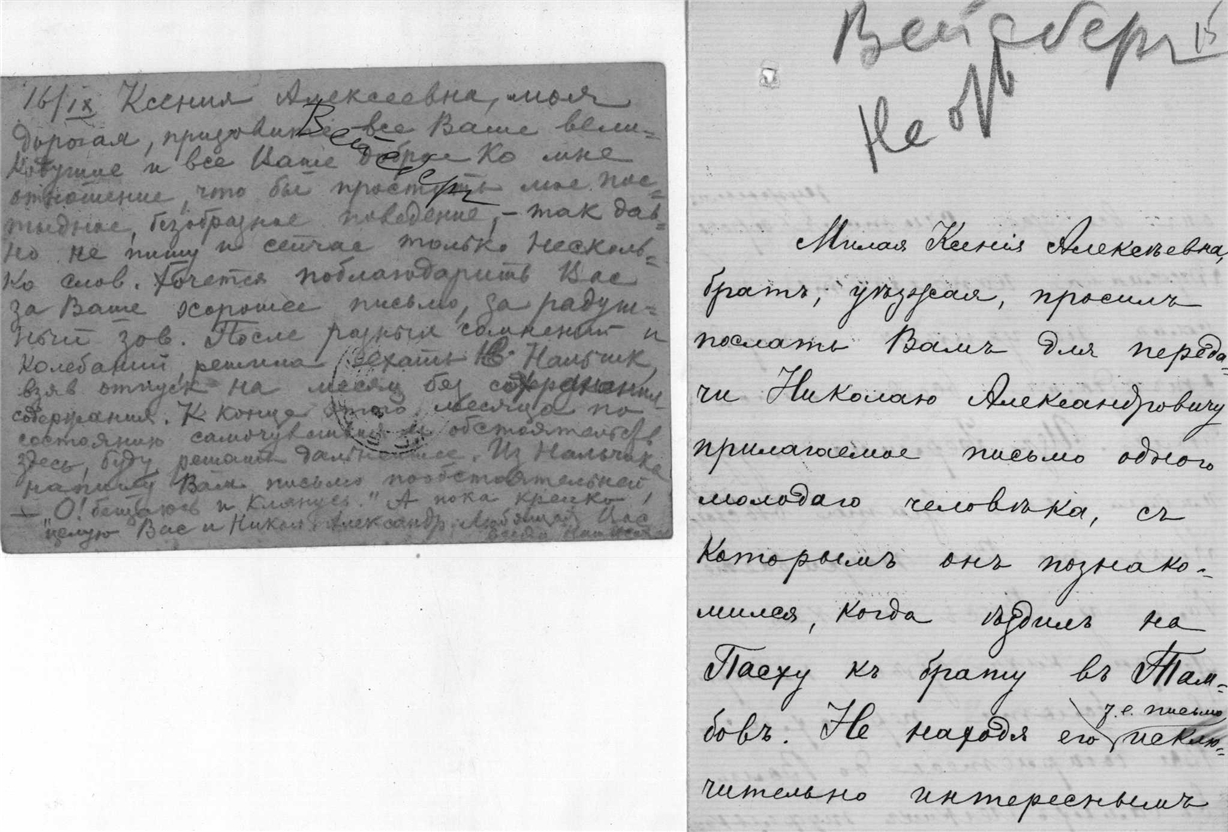 16/IX Ксения Алексеевна, моя
дорогая, призовите все Ваше вели-
кодушие и все Ваше доброе ко мне
отношение, что бы простить мое пос-
тыдное, безобразное поведение, – так дав-
но не пишу и сейчас только несколь-
ко слов. Хочется поблагодарить Вас
за Ваше хорошее письмо, за радуш-
ный зов. После разных сомнений и
колебаний, решила ехать в Нальчик,
взяв отпуск на месяц без содержания
содержания. К концу этого месяца по
состоянию самочувствия и обстоятельств
здесь, буду решать дальнейшее. Из Нальчика
напишу Вам письмо пообстоятельней
– О! бещаюсь и клянусь" А пока крепко
целую Вас и Никол. Александр. Любящая Вас
Вейсберг
Вейсберг 15
Не обр
Милая Ксенія Алексѣевна,
братъ, уѣзжая, просилъ
послать Вамъ для переда-
чи Николаю Александровичу
прилагаемое письмо одного
молодаго человѣка, съ
которымъ онъ познако-
мился, когда ѣздилъ на
Пасху къ брату въ Там-
бовъ. Не находя его исклю-
т.е. письмо
чительно интереснымъ